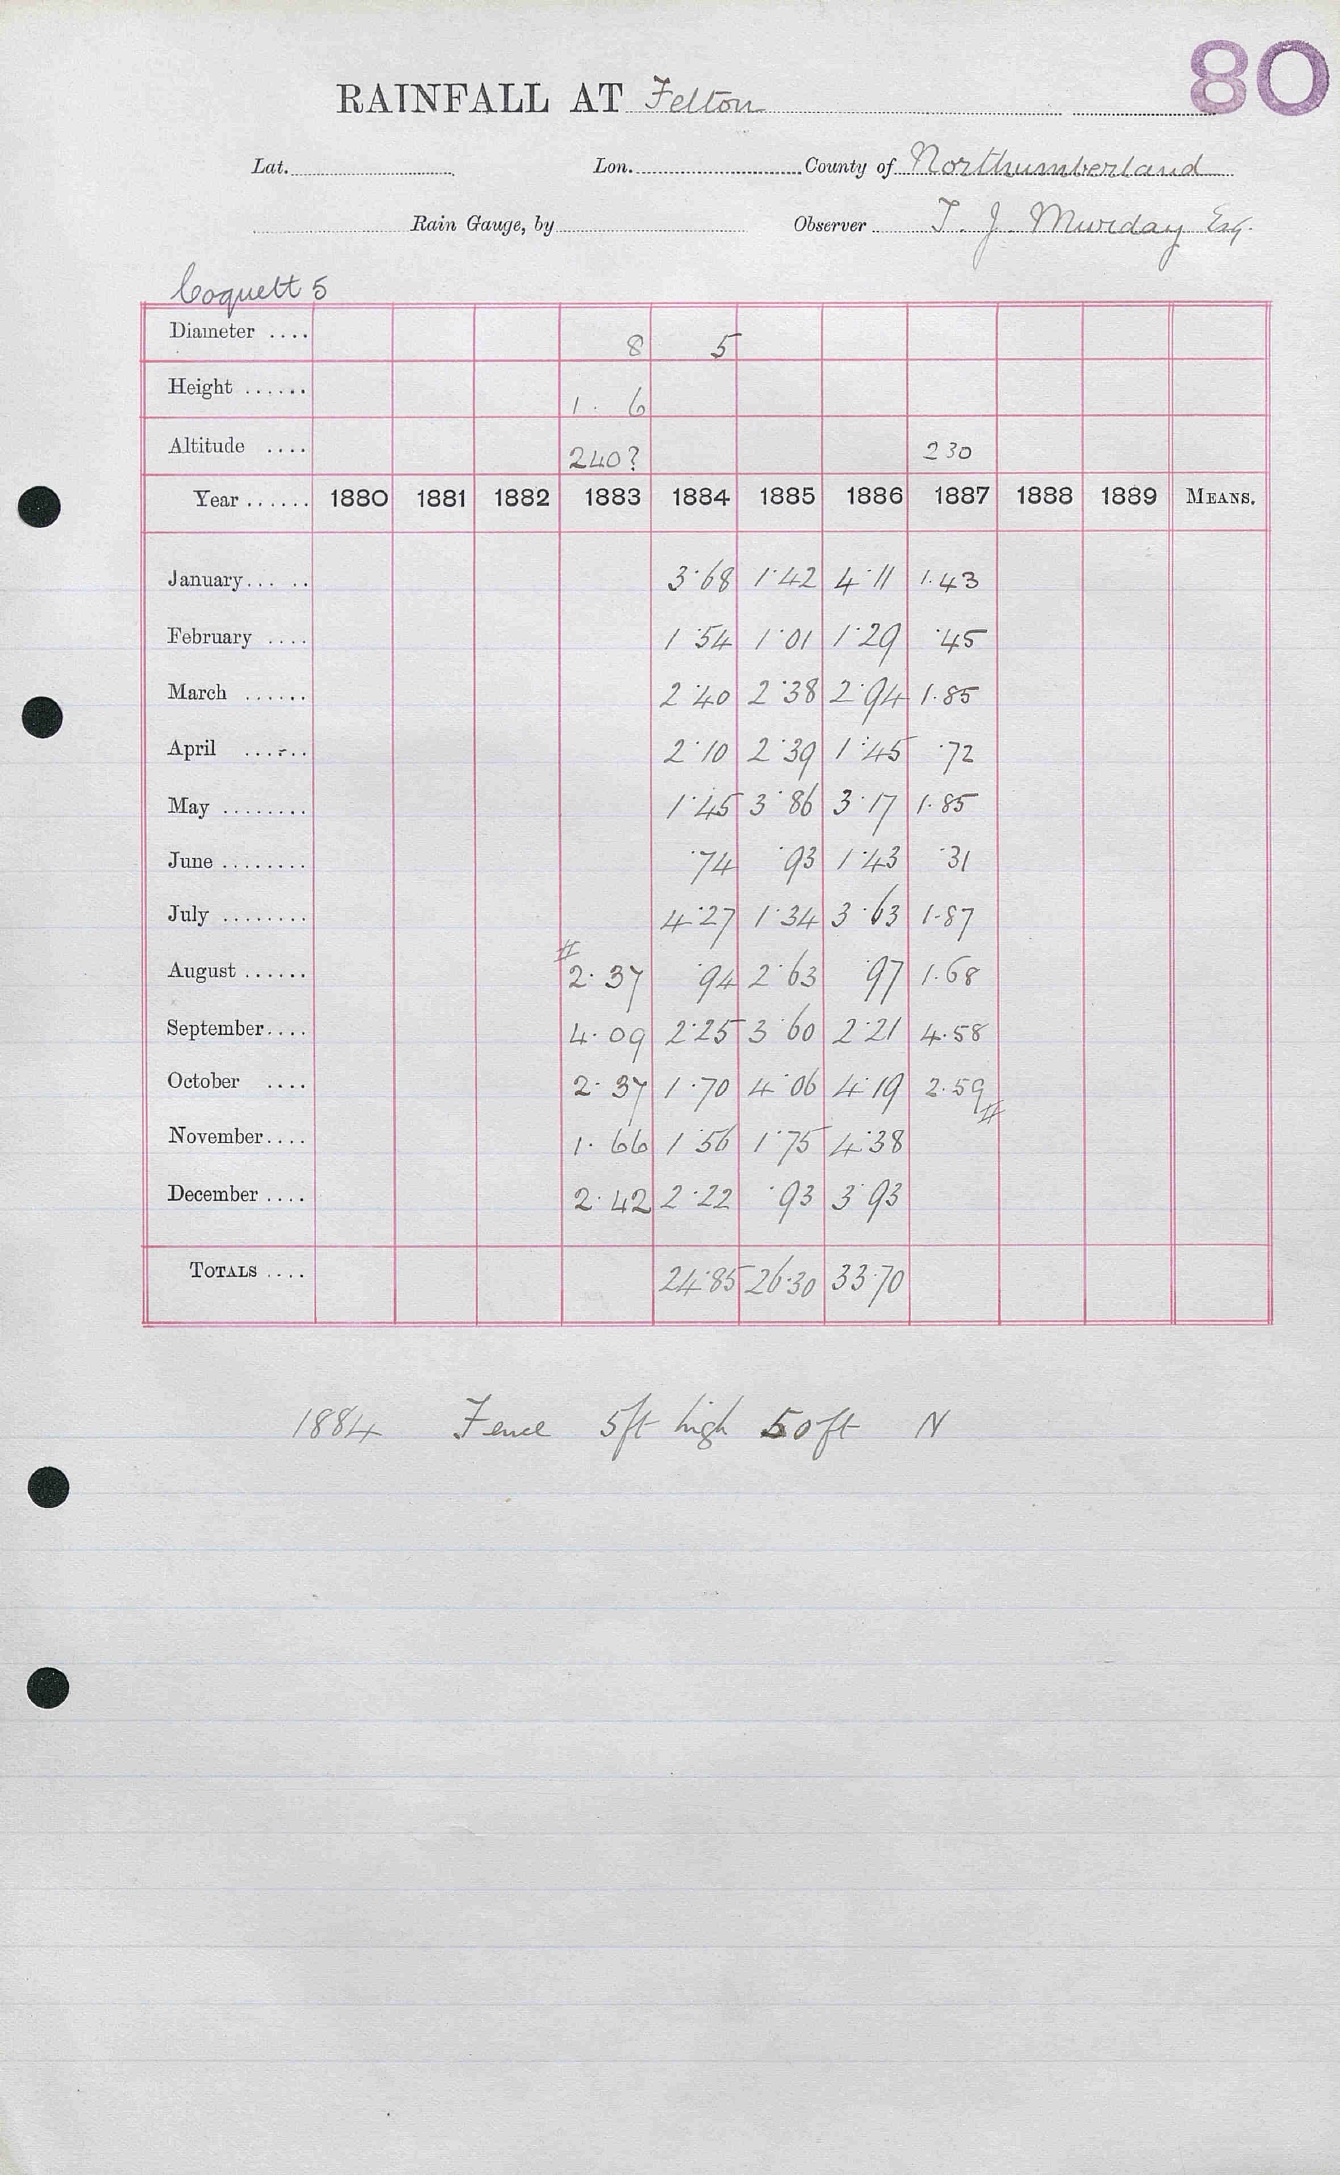 80
RAINFALL AT Felton
Lat. Lon. County of Northumberland
Rain Gauge, by Observer T. J. Murday Esq.
Coquett 5
Diameter .... 8 5
Height ...... 1. 6
Altitude .... 240? 230
Year ...... 1880 1881 1882 1883 1884 1885 1886 1887 1888 1889 MEANS.
January... .. 3.68 1.42 4.11 1.43
February .... 1.54 1.01 1.29 .45
March ...... 2.40 2.38 2.94 1.85
April ...... 2.10 2.39 1.45 .72
May ........ 1.45 3.86 3.17 1.85
June ........ .74 .93 1.43 .31
July ........ 4.27 1.34 3.63 1.87
August ...... # 2.37 .94 2.63 .97 1.68
September.... 4.09 2.25 3.60 2.21 4.58
October .... 2.37 1.70 4.06 4.19 2.59 #
November.... 1.66 1.56 1.75 4.38
December .... 2.42 2.22 .93 3.93
TOTALS .... 24.85 26.30 33.70
1884 Fence 5ft high 50ft N